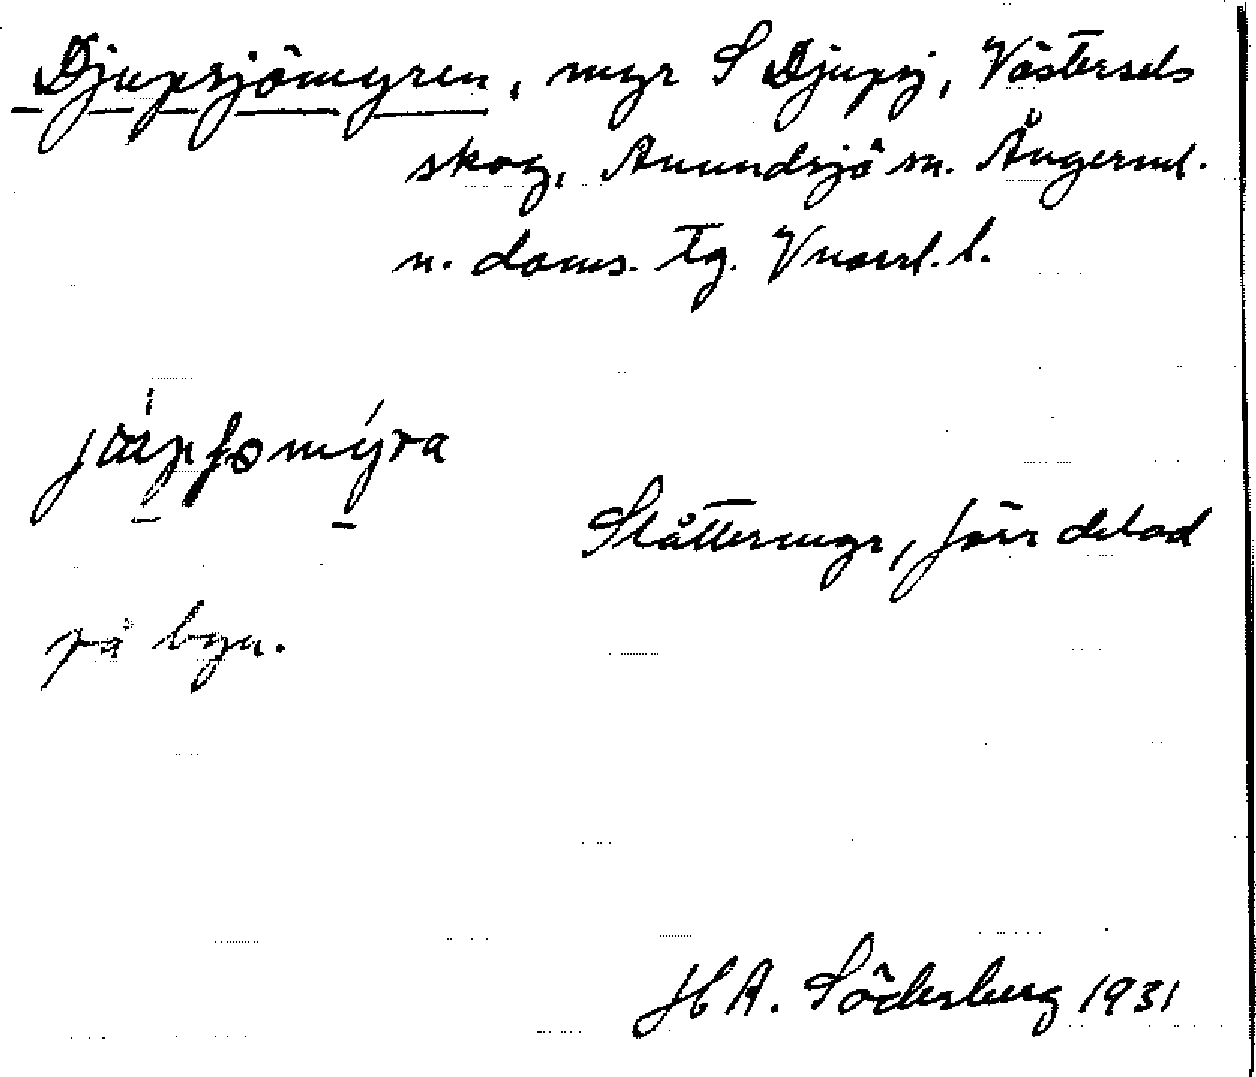 Djupsjömyren, myr S Djupsj, Västersels
skog, Anundsjö sn. Ångerml.
n. doms. tg. Vnorrl. l.
Slåttermyr, förr delad
på byn.
H A. Söderberg 1931